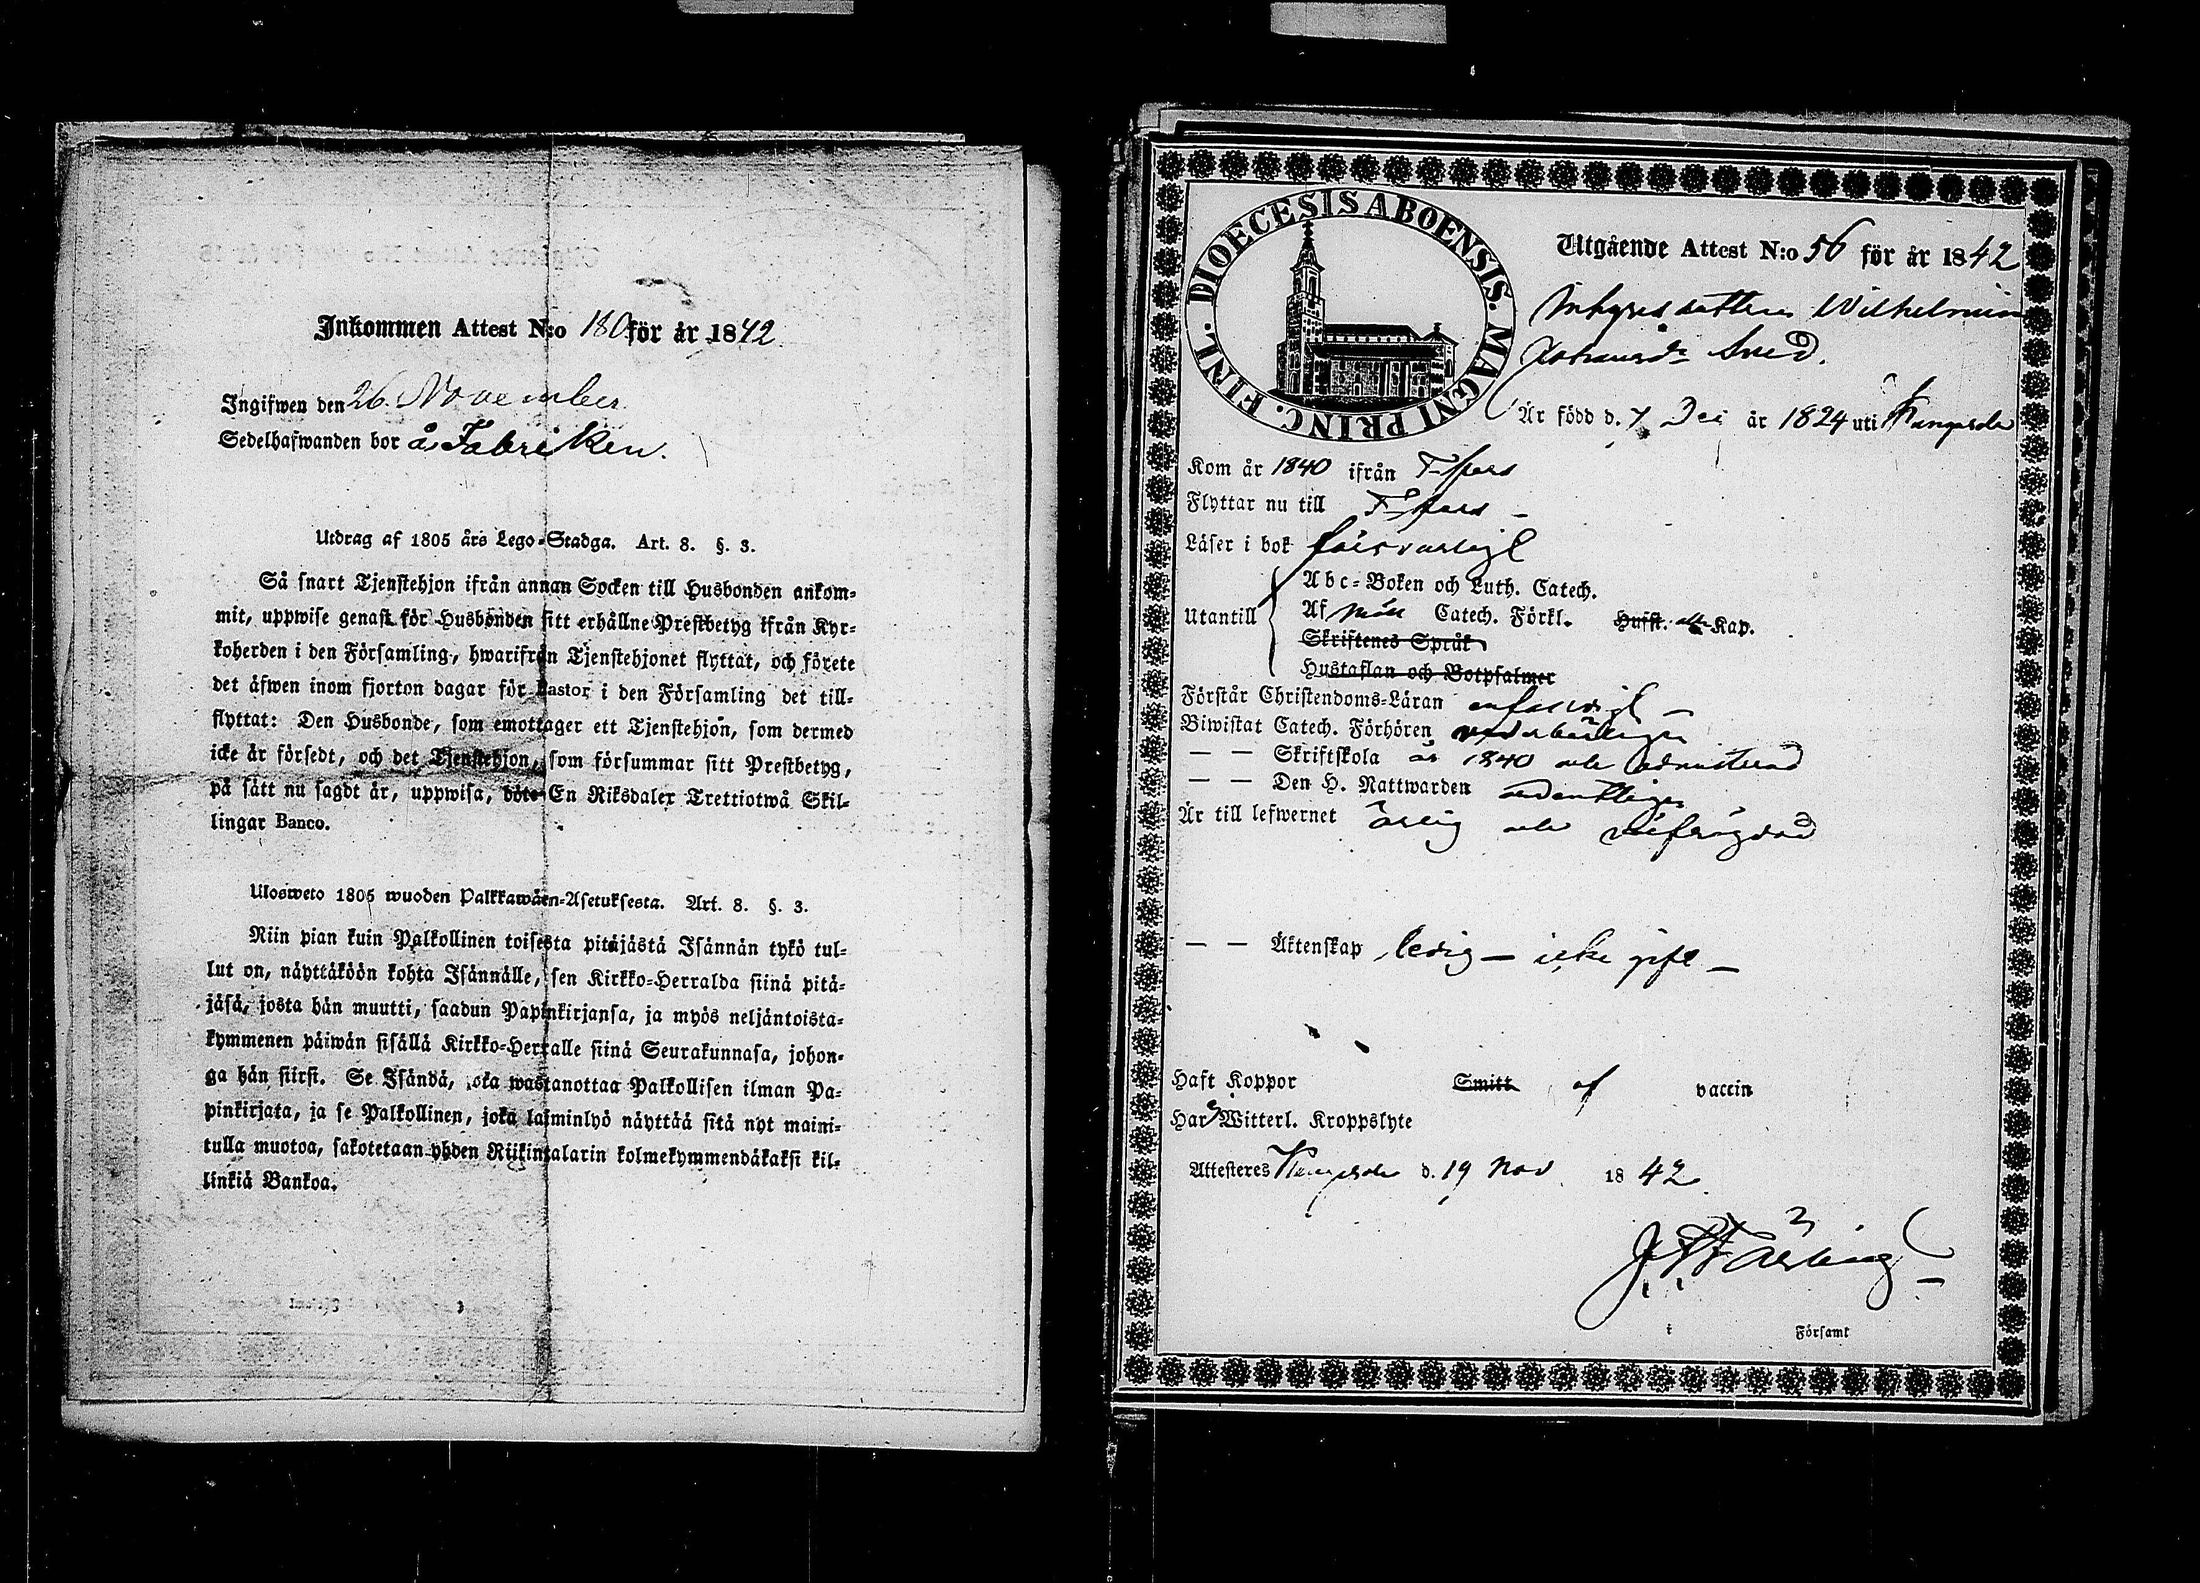 Inkommen Attest N:o 180 för år 1842
Ingifwen den 26. November
Sedelhafwanden bor å Fabriken.
Utdrag af 1805 års Lego-Stadga. Art. 8. §. 3.
Så snart Tjenstehjon ifrån annan Socken till Husbonden ankom-
mit, uppwise genast för Husbonden sitt erhållne Prestbetyg ifrån Kyr-
koherden i den Församling, hwarifrån Tjenstehjonet flyttat, och förete
det äfwen inom fjorton dagar för Pastor i den Församling det till-
flyttat: Den Husbonde, som emottager ett Tjenstehjon, som dermed
icke är försedt, och det Tjenstehjon, som försummar sitt Prestbetyg,
på sätt nu sagdt är, uppwisa, böte En Riksdaler Trettiotwå Skil-
lingar Banco.
Ulosweto 1805 wuoden Palkkawäen-Asetuksesta. Art. 8. §. 3.
Niin pian kuin Palkollinen toisesta pitäjästä Isännän tykö tul-
lut on, näyttäköön kohta Isännälle, sen Kirkko-Herralda siinä pitä-
jäsä, josta hän muutti, saadun Papinkirjansa, ja myös neljäntoista-
kymmenen päiwän sisällä Kirkko-Herralle siinä Seurakunnasa, johon-
ga hän siirsi. Se Isändä, joka wastanottaa Palkollisen ilman Pa-
pinkirjata, ja se Palkollinen, joka laiminlyö näyttää sitä nyt maini-
tulla muotoa, sakotetaan yhden Riikintalarin kolmekymmendäkaksi kil-
linkiä Bankoa.
DIOECESIS ABOENSIS. MAGNI PRINC. FINL.
Utgående Attest N:o 56 för år 1842
Inhyses dottern Wilhelmina
Är född d. 7 Dec år 1824 uti Kangasala
Kom år 1840 ifrån T-fors
Flyttar nu till T-fors
Läser i bok försvarligt
Abc-Boken och Luth. Catech.
Utantill Af Catech. Förkl. Husst. Kap.
Skriftenes Språk
Hustaflan och Botpsalmer
Förstår Christendoms-Läran enfaldigt
Biwistat Catech. Förhören vederbörligen
— — Skriftskola år 1840 och admitterad
— — Den H. Nattwarden ordentligen
Är till lefwernet ärlig och oberyktad
— — Äktenskap ledig — icke gift —
Haft Koppor Smitt af vaccin
Har Witterl. Kroppslyte
Attesteres Kangasala d. 19 Nov 1842
i Församl